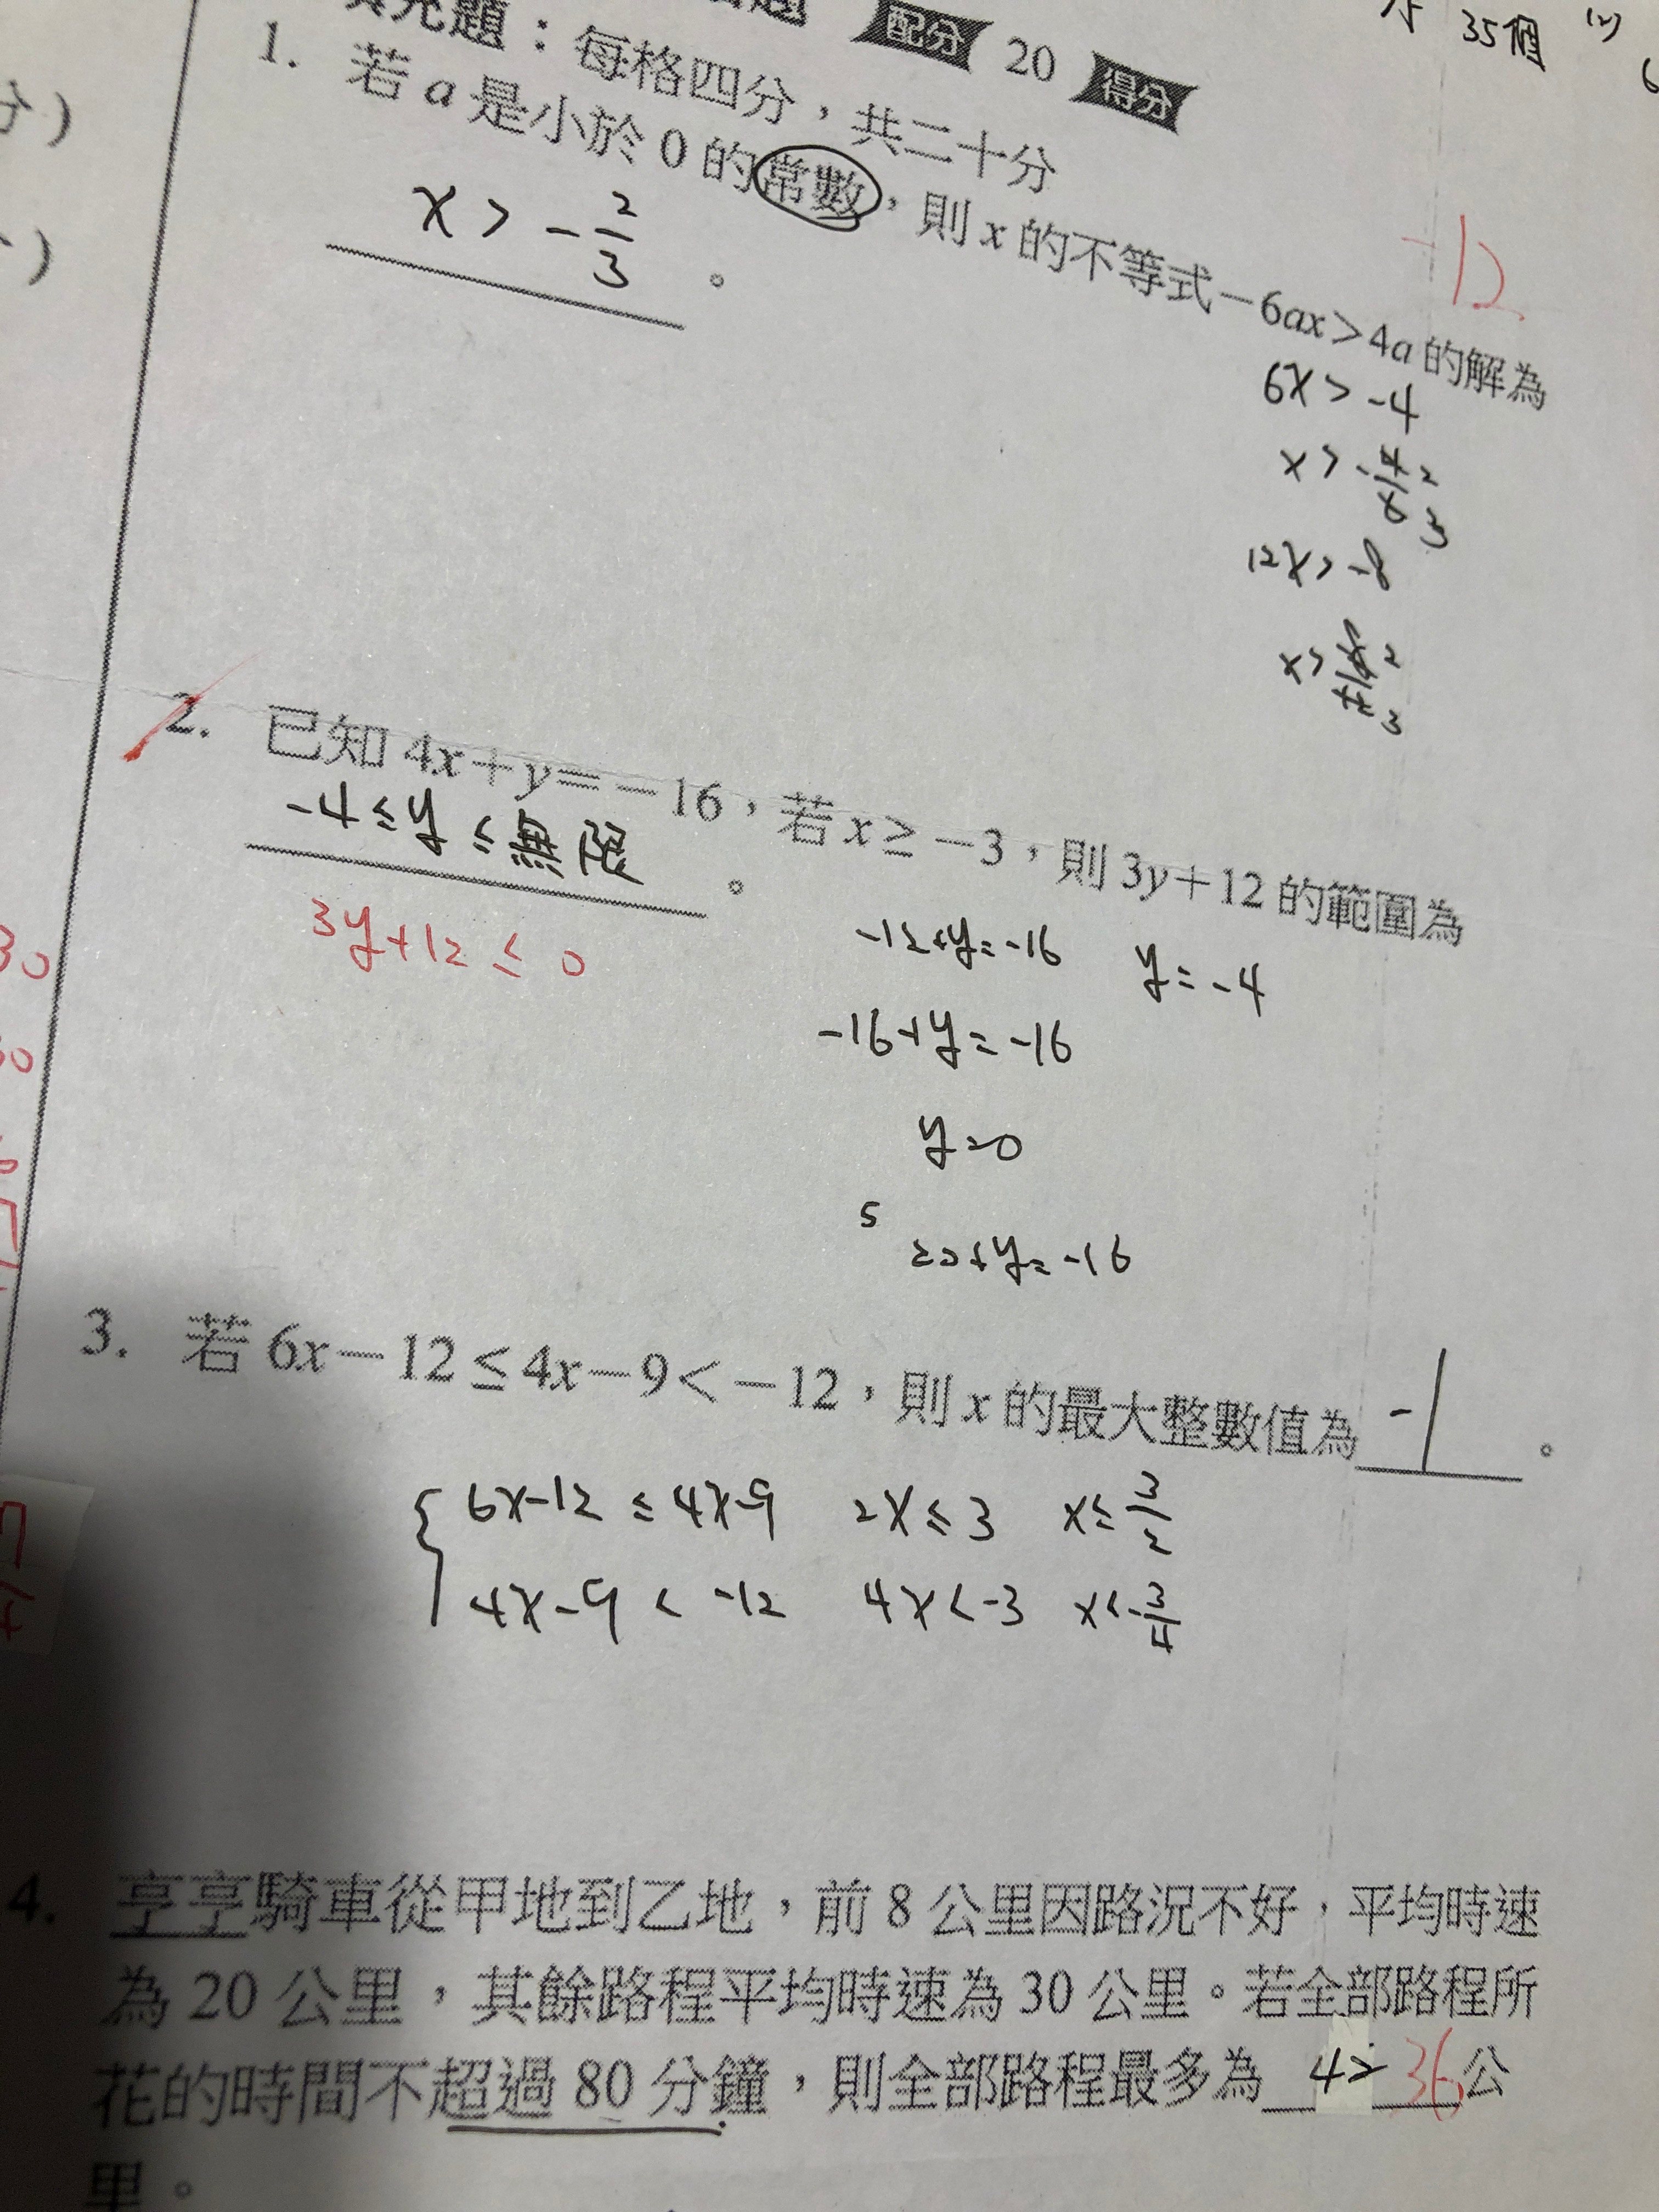 填充題：每格四分，共二十分 配分 20 得分
35個 (2)
1. 若 a 是小於 0 的常數，則 x 的不等式－6ax＞4a 的解為
x > -2/3 。
-12
6x > -4
x > -4/6 2 3
12x > -8
x > 2 3
2. 已知 4x＋y＝－16，若 x≥－3，則 3y＋12 的範圍為
-4 ≤ y ≤ 無限 。
3y+12 ≤ 0
-12+y=-16 y=-4
-16+y=-16
y=0
5
20+y=-16
3. 若 6x－12≤4x－9＜－12，則 x 的最大整數值為 -1 。
6x-12 ≤ 4x-9 2x ≤ 3 x ≤ 3/2
4x-9 < -12 4x < -3 x < -3/4
4. 亨亨騎車從甲地到乙地，前 8 公里因路況不好，平均時速
為 20 公里，其餘路程平均時速為 30 公里。若全部路程所
花的時間不超過 80 分鐘，則全部路程最多為 42 36 公
里。